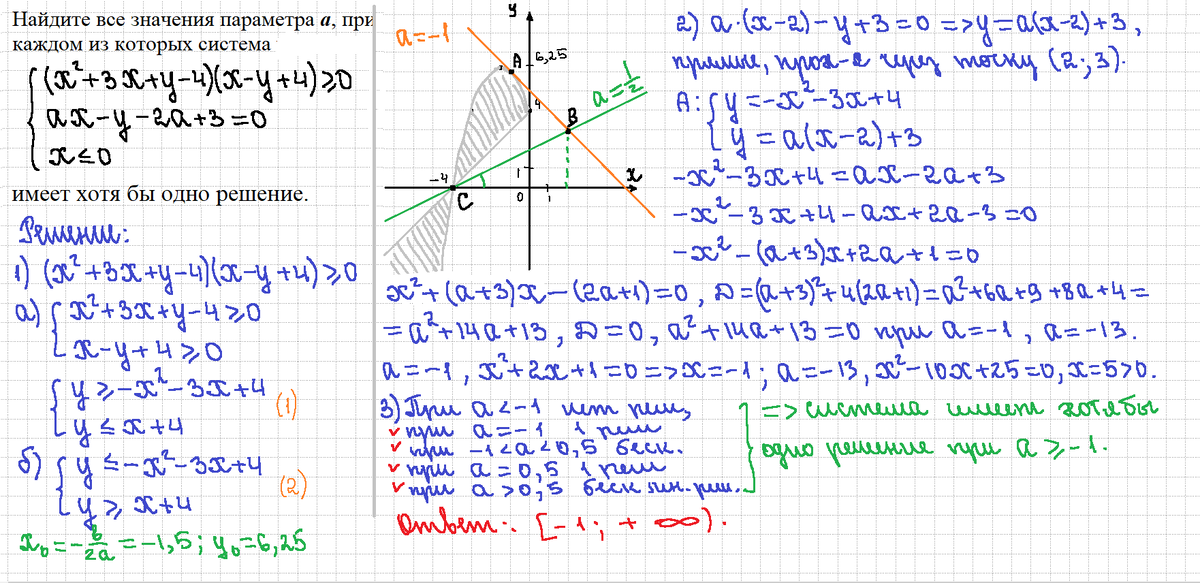 Найдите все значения параметра a, при
каждом из которых система
(x²+3x+y-4)(x-y+4)≥0
ax-y-2a+3=0
x≤0
имеет хотя бы одно решение.
Решение:
1) (x²+3x+y-4)(x-y+4)≥0
а) x²+3x+y-4≥0
x-y+4≥0
y≥-x²-3x+4
y≤x+4
(1)
б) y≤-x²-3x+4
y≥x+4
(2)
x₀=-b/2a=-1,5; y₀=6,25
a=-1
y
A
6,25
4
a=1/2
B
x
-4
C
1
0
1
2) a·(x-2)-y+3=0 =>y=a(x-2)+3,
прямые, прох-е через точку (2;3).
A: y=-x²-3x+4
y=a(x-2)+3
-x²-3x+4=ax-2a+3
-x²-3x+4-ax+2a-3=0
-x²-(a+3)x+2a+1=0
x²+(a+3)x-(2a+1)=0, D=(a+3)²+4(2a+1)=a²+6a+9+8a+4=
=a²+14a+13, D=0, a²+14a+13=0 при a=-1, a=-13.
a=-1, x²+2x+1=0=>x=-1; a=-13, x²-10x+25=0, x=5>0.
3) При a<-1 нет реш,
✓при a=-1 1 реш
✓при -1<a<0,5 беск.
✓при a=0,5 1 реш
✓при a>0,5 беск.мн.реш.
=> система имеет хотя бы
одно решение при a≥-1.
Ответ: [-1; +∞).